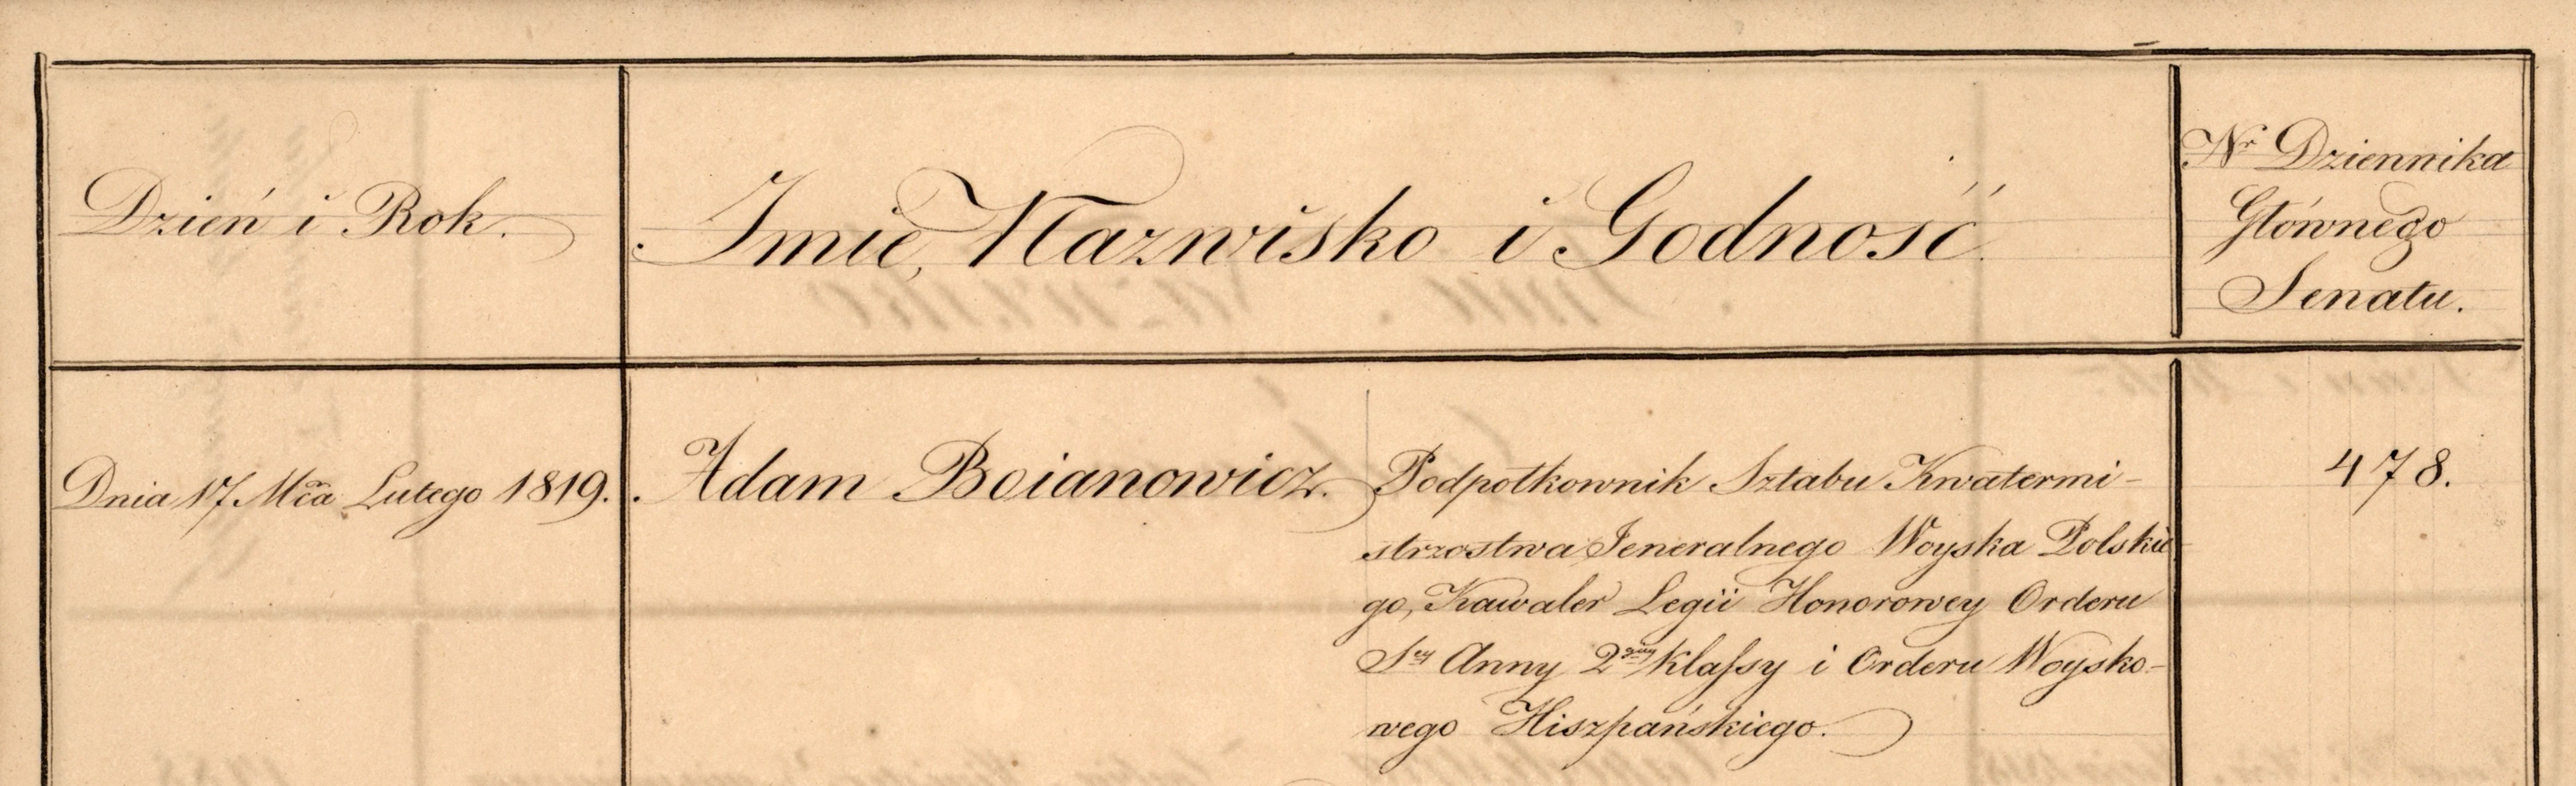 Dzień i Rok.
Imie, Nazwisko i Godność.
Nr Dziennika
Głównego
Senatu.
Dnia 17 Mca Lutego 1819.
Adam Boianowicz.
Podpołkownik Sztabu Kwatermi-
strzostwa Jeneralnego Woyska Polskie-
go, Kawaler Legii Honorowey Orderu
Sey Anny 2giey Klassy i Orderu Woysko-
wego Hiszpańskiego.
478.